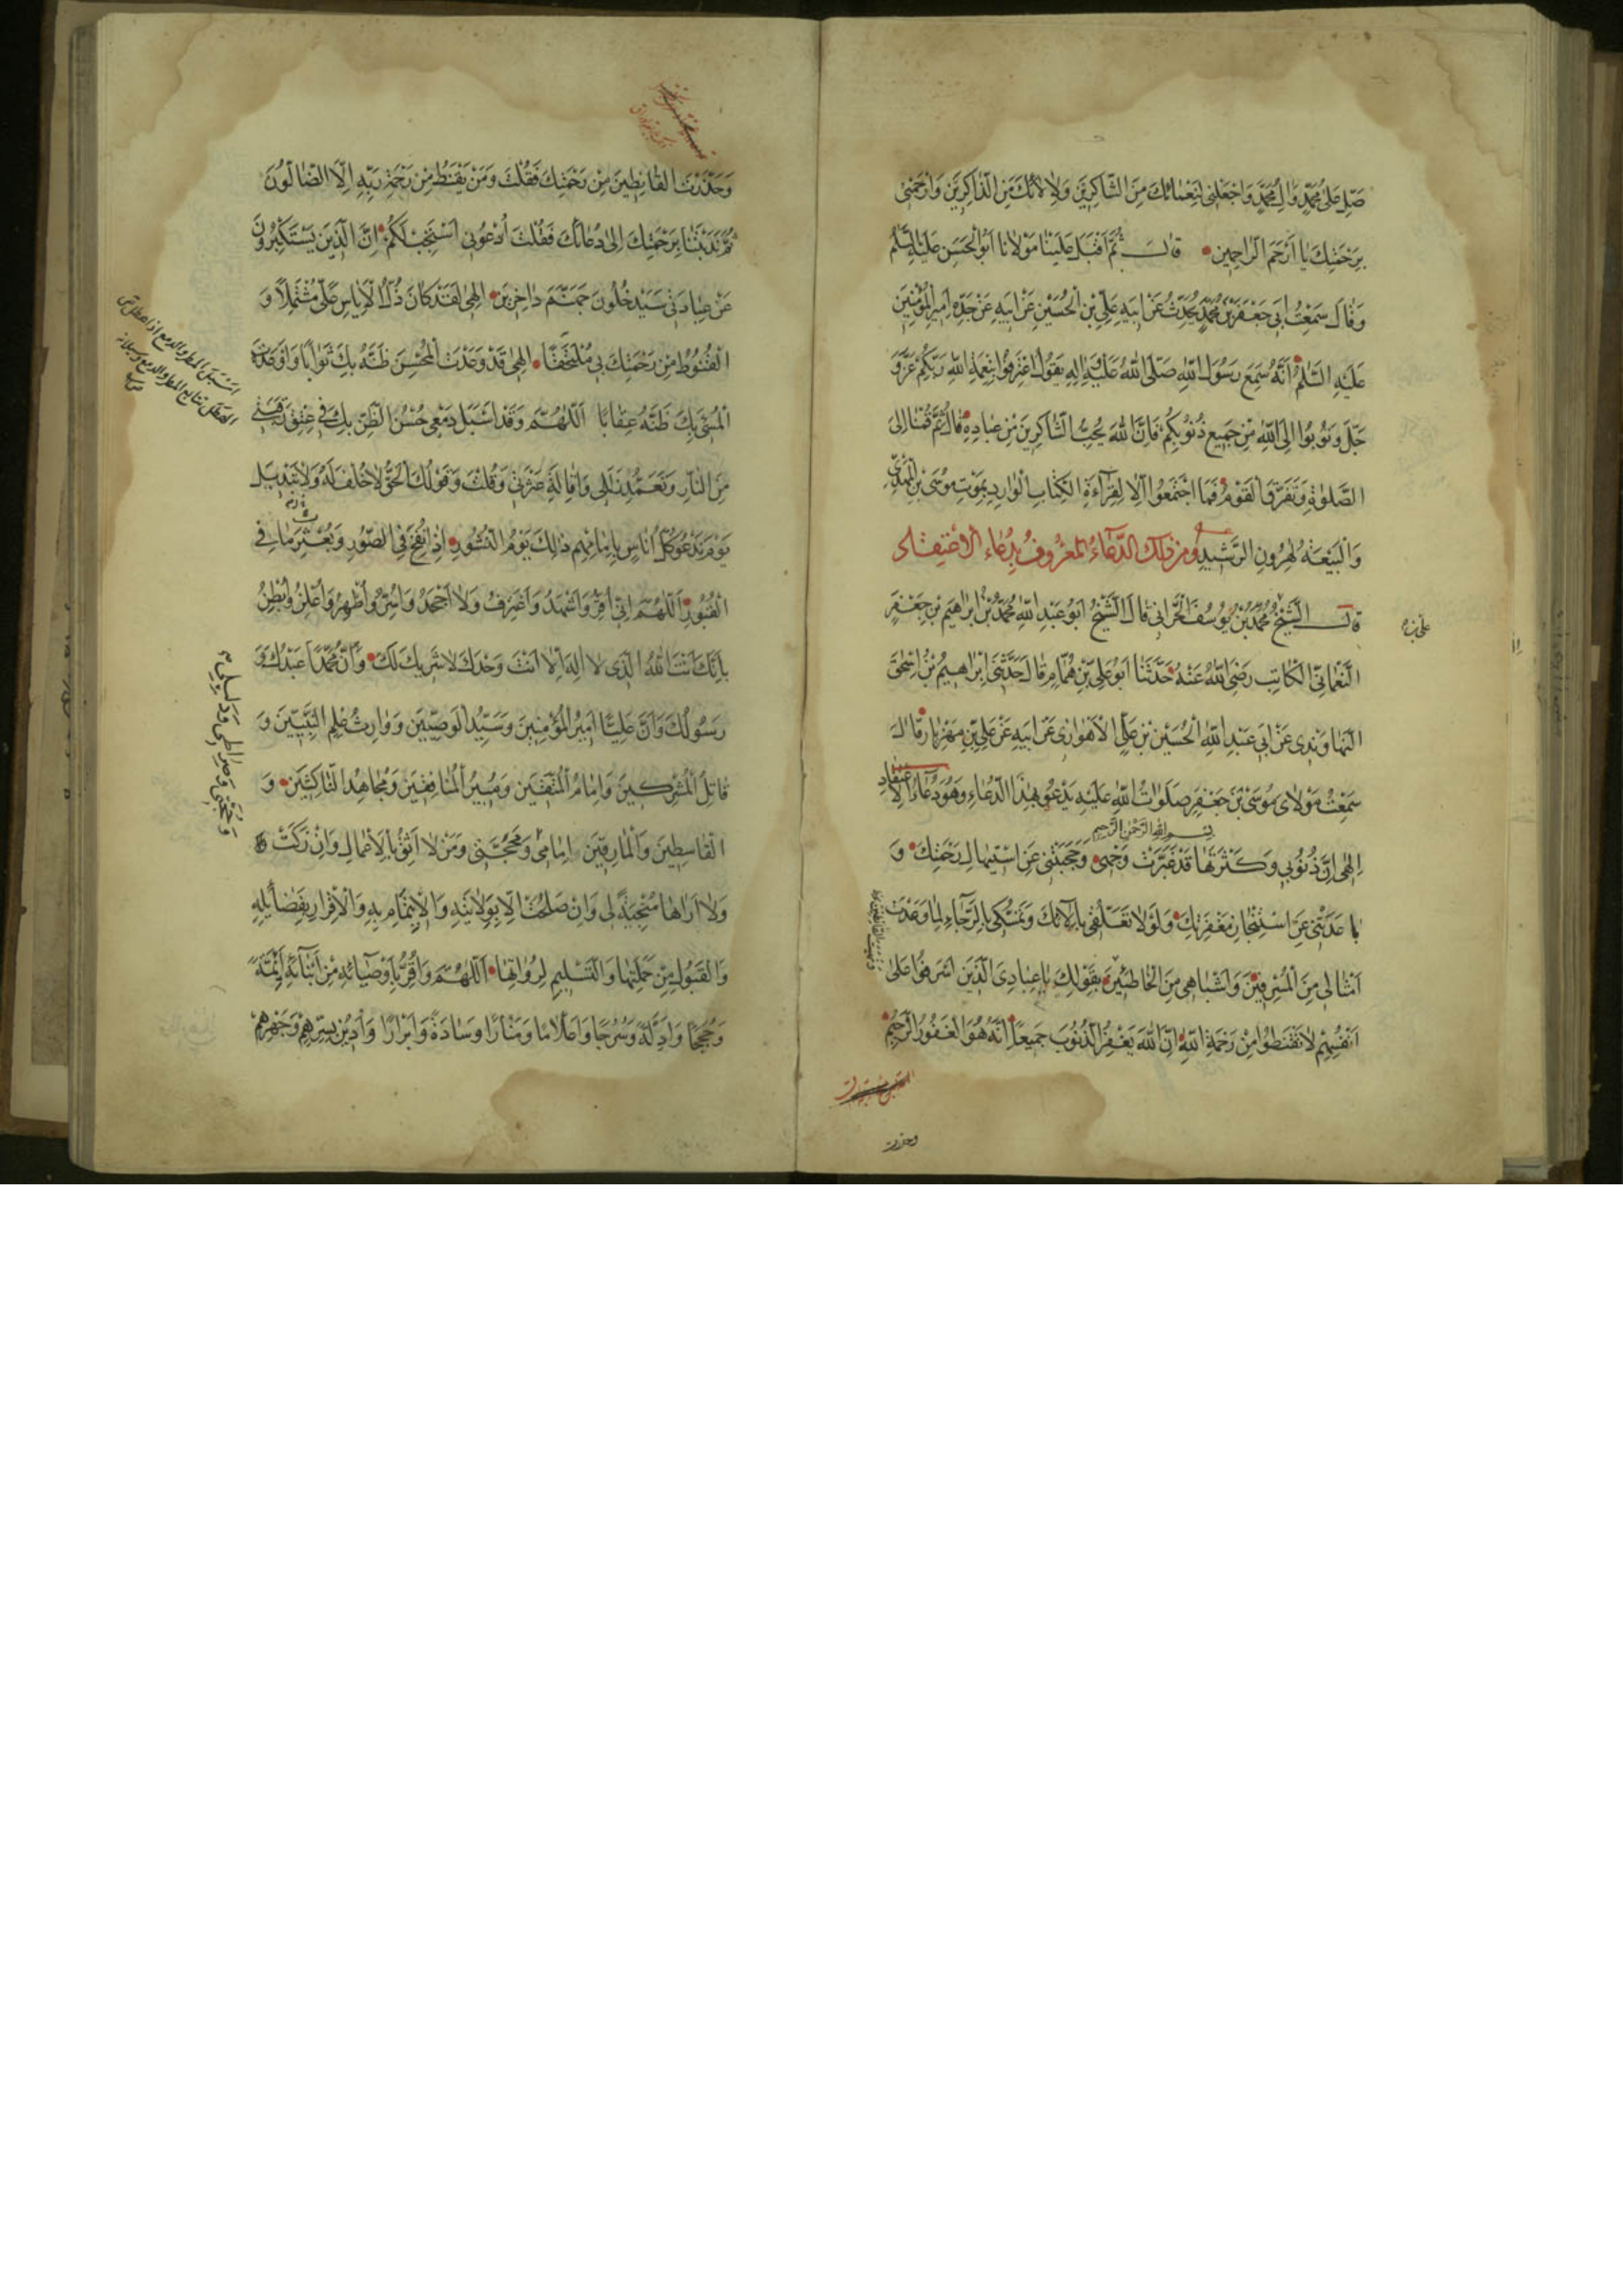 صَلِّ عَلَى مُحَمَّدٍ وَآلِ مُحَمَّدٍ وَاجْعَلْنِي لِنَعْمَائِكَ مِنَ الشَّاكِرِينَ وَلِآلَائِكَ مِنَ الذَّاكِرِينَ وَارْحَمْنِي
بِرَحْمَتِكَ يَا أَرْحَمَ الرَّاحِمِينَ قَالَ ثُمَّ أَقْبَلَ عَلَيْنَا مَوْلَانَا أَبُو الْحَسَنِ عَلَيْهِ السَّلَمُ
وَقَالَ سَمِعْتُ أَبِي جَعْفَرَ بْنَ مُحَمَّدٍ يُحَدِّثُ عَنْ أَبِيهِ عَنْ عَلِيِّ بْنِ الْحُسَيْنِ عَنْ أَبِيهِ عَنْ جَدِّهِ أَمِيرِ الْمُؤْمِنِينَ
عَلَيْهِ السَّلَمُ أَنَّهُ سَمِعَ رَسُولَ اللَّهِ صَلَّى اللَّهُ عَلَيْهِ وَآلِهِ يَقُولُ اعْتَرِفُوا بِنِعْمَةِ اللَّهِ رَبِّكُمْ عَزَّ وَ
جَلَّ وَتُوبُوا إِلَى اللَّهِ مِنْ جَمِيعِ ذُنُوبِكُمْ فَإِنَّ اللَّهَ يُحِبُّ الشَّاكِرِينَ مِنْ عِبَادِهِ قَالَ ثُمَّ قُمْنَا إِلَى
الصَّلَوةِ وَتَفَرَّقَ الْقَوْمُ فَمَا اجْتَمَعُوا إِلَّا لِقِرَاءَةِ الْكِتَابِ الْوَارِدِ بِمَوْتِ مُوسَى بْنِ الْمَهْدِيِّ
وَالْبَيْعَةِ لِهَرُونَ الرَّشِيدِ وَمِنْ ذَلِكَ الدُّعَاءُ الْمَعْرُوفُ بِدُعَاءِ الْاعْتِقَادِ
قَالَ الشَّيْخُ مُحَمَّدُ بْنُ يُوسُفَ الْحَرَّانِي قَالَ الشَّيْخُ أَبُو عَبْدِ اللَّهِ مُحَمَّدُ بْنُ إِبْرَاهِيمَ بْنِ جَعْفَرٍ
النُّعْمَانِيُّ الْكَاتِبُ رَضِيَ اللَّهُ عَنْهُ حَدَّثَنَا أَبُو عَلِيِّ بْنُ هَمَّامٍ قَالَ حَدَّثَنِي إِبْرَاهِيمُ بْنُ إِسْحَقَ
النَّهَاوَنْدِي عَنْ أَبِي عَبْدِ اللَّهِ الْحُسَيْنِ بْنِ عَلِيٍّ الْأَهْوَازِي عَنْ أَبِيهِ عَنْ عَلِيِّ بْنِ مَهْزِيَارَ قَالَ
سَمِعْتُ مَوْلَايَ مُوسَى بْنَ جَعْفَرٍ صَلَوَاتُ اللَّهِ عَلَيْهِ يَدْعُو بِهَذَا الدُّعَاءِ وَهُوَ دُعَاءُ الْاعْتِقَادِ
بسم الله الرحمن الرحيم
إِلَهِي إِنَّ ذُنُوبِي وَكَثْرَتَهَا قَدْ غَبَّرَتْ وَجْهِي وَحَجَبَتْنِي عَنِ اسْتِيهَالِ رَحْمَتِكَ وَ
بَاعَدَتْنِي عَنِ اسْتِنْجَازِ مَغْفِرَتِكَ وَلَوْلَا تَعَلُّقِي بِآلَائِكَ وَتَمَسُّكِي بِالرَّجَاءِ لِمَا وَعَدْتَ
أَمْثَالِي مِنَ الْمُسْرِفِينَ وَأَشْبَاهِي مِنَ الْخَاطِئِينَ بِقَوْلِكَ يَا عِبَادِيَ الَّذِينَ أَسْرَفُوا عَلَى
أَنْفُسِهِمْ لَا تَقْنَطُوا مِنْ رَحْمَةِ اللَّهِ إِنَّ اللَّهَ يَغْفِرُ الذُّنُوبَ جَمِيعًا إِنَّهُ هُوَ الْغَفُورُ الرَّحِيمُ
وحذرت
وَحَذَّرْتَ الْقَانِطِينَ مِنْ رَحْمَتِكَ فَقُلْتَ وَمَنْ يَقْنَطُ مِنْ رَحْمَةِ رَبِّهِ إِلَّا الضَّالُّونَ
ثُمَّ نَدَبْتَنَا بِرَحْمَتِكَ إِلَى دُعَائِكَ فَقُلْتَ ادْعُونِي أَسْتَجِبْ لَكُمْ إِنَّ الَّذِينَ يَسْتَكْبِرُونَ
عَنْ عِبَادَتِي سَيَدْخُلُونَ جَهَنَّمَ دَاخِرِينَ إِلَهِي لَقَدْ كَانَ ذُلُّ الْإِيَاسِ عَلَيَّ مُشْتَمِلًا وَ
الْقُنُوطُ مِنْ رَحْمَتِكَ بِي مُلْتَحِفًا إِلَهِي قَدْ وَعَدْتَ الْمُحْسِنَ ظَنَّهُ بِكَ ثَوَابًا وَأَوْعَدْتَ
الْمُسِيءَ بِكَ ظَنَّهُ عِقَابًا اللَّهُمَّ وَقَدْ أَسْبَلَ دَمْعِي حُسْنُ الظَّنِّ بِكَ فِي عِتْقِ رَقَبَتِي
مِنَ النَّارِ وَتَغَمُّدِ زَلَلِي وَإِقَالَةِ عَثْرَتِي وَقُلْتَ وَقَوْلُكَ الْحَقُّ لَا خُلْفَ لَهُ وَلَا تَبْدِيلَ
يَوْمَ نَدْعُو كُلَّ أُنَاسٍ بِإِمَامِهِمْ ذَلِكَ يَوْمُ النُّشُورِ إِذَا نُفِخَ فِي الصُّورِ وَبُعْثِرَ مَا فِي
الْقُبُورِ اللَّهُمَّ إِنِّي أُقِرُّ وَأَشْهَدُ وَأَعْتَرِفُ وَلَا أَجْحَدُ وَأُسِرُّ وَأُظْهِرُ وَأُعْلِنُ وَأُبْطِنُ
بِأَنَّكَ أَنْتَ اللَّهُ الَّذِي لَا إِلَهَ إِلَّا أَنْتَ وَحْدَكَ لَا شَرِيكَ لَكَ وَأَنَّ مُحَمَّدًا عَبْدُكَ وَ
رَسُولُكَ وَأَنَّ عَلِيًّا أَمِيرُ الْمُؤْمِنِينَ وَسَيِّدُ الْوَصِيِّينَ وَوَارِثُ عِلْمِ النَّبِيِّينَ وَ
قَاتِلُ الْمُشْرِكِينَ وَإِمَامُ الْمُتَّقِينَ وَمُبِيرُ الْمُنَافِقِينَ وَمُجَاهِدُ النَّاكِثِينَ وَ
الْقَاسِطِينَ وَالْمَارِقِينَ إِمَامِي وَمَحَجَّتِي وَمَنْ لَا أَثِقُ بِالْأَعْمَالِ وَإِنْ زَكَتْ
وَلَا أَرَاهَا مُنْجِيَةً لِي وَإِنْ صَلُحَتْ إِلَّا بِوِلَايَتِهِ وَالْإِيتِمَامِ بِهِ وَالْإِقْرَارِ بِفَضَائِلِهِ
وَالْقَبُولِ مِنْ حَمَلَتِهَا وَالتَّسْلِيمِ لِرُوَاتِهَا اللَّهُمَّ وَأُقِرُّ بِأَوْصِيَائِهِ مِنْ أَبْنَائِهِ أَئِمَّةً
وَحُجَجًا وَأَدِلَّةً وَسُرُجًا وَأَعْلَامًا وَمَنَارًا وَسَادَةً وَأَبْرَارًا وَأَدِينُ بِسِرِّهِمْ وَجَهْرِهِمْ
وَحُجَّتِي وَصِرَاطِي وَدَلِيلِي